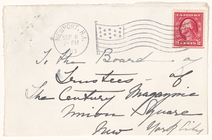 To the Board of
Trustees of
The Century Magazine
Union Square
New York City